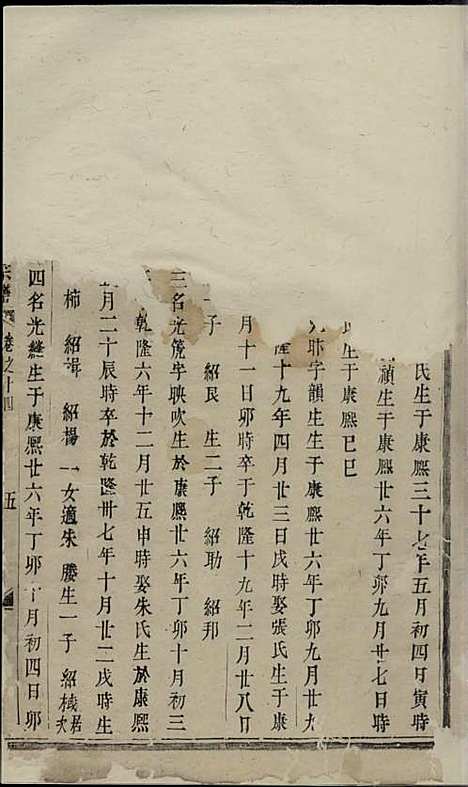 氏生于康熙三十七年五月初四日寅時
禎生于康熙廿六年丁卯九月廿七日時
氏生于康熙己巳
耶字韻生生于康熙廿六年丁卯九月廿九
隆十九年四月廿三日戌時娶張氏生于康
月十一日卯時卒于乾隆十九年二月廿八日
子 紹艮 生二子 紹勛 紹邦
三名光篪字映吹生於康熙廿六年丁卯十月初三
乾隆六年十二月廿五申時娶朱氏生於康熙
月二十辰時卒於乾隆卅七年十月廿二戌時生
柿 紹楫 紹楊 一女適朱 媵生一子 紹棫居次
四名光縫生于康熙廿六年丁卯十月初四日卯
宗譜 卷之十四 五